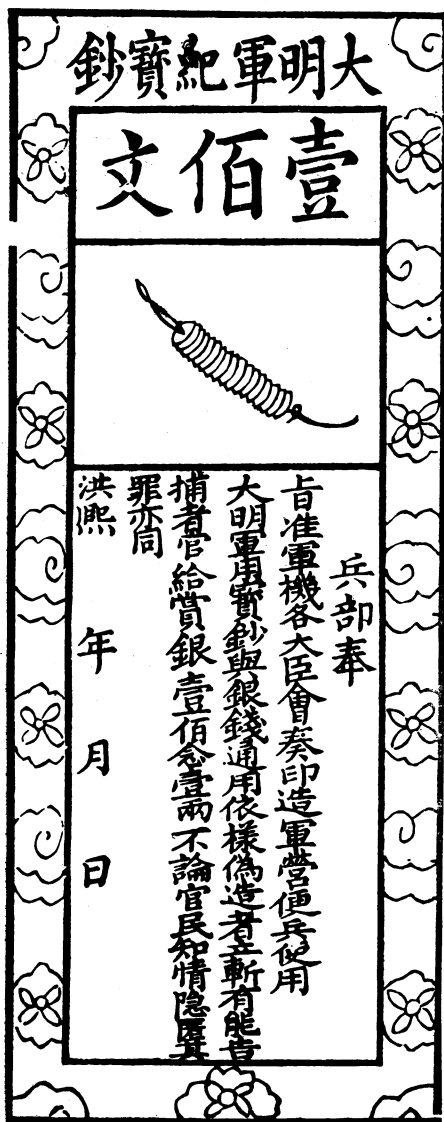 大明軍紀寶鈔
壹佰文
兵部奉
旨准軍機各大臣會奏印造軍營便兵使用
大明軍用寶鈔與銀錢通用依樣偽造者立斬有能告
捕者官給賞銀壹佰念壹兩不論官民知情隐匿其
罪亦同
洪熙 年 月 日